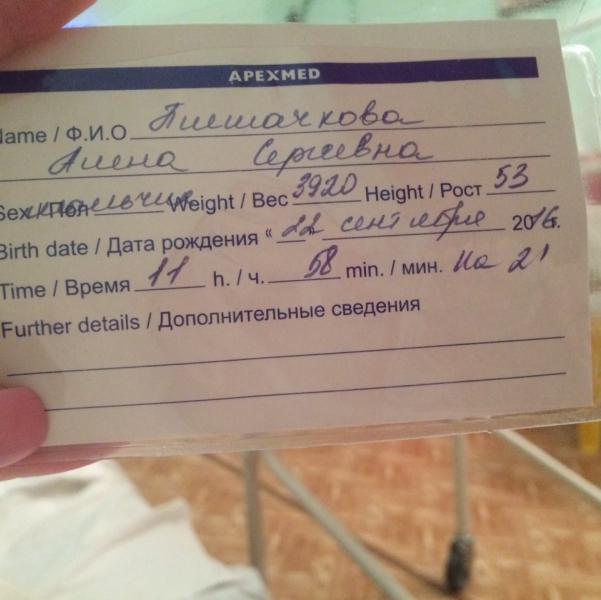 APEXMED
Name / Ф.И.О
Алена Сергеевна
Sex / Пол мальчик Weight / Вес 3920 Height / Рост 53
Birth date / Дата рождения “ 22 сентября 2016г.
Time / Время 11 h. / ч. 58 min. / мин. На 21
Further details / Дополнительные сведения